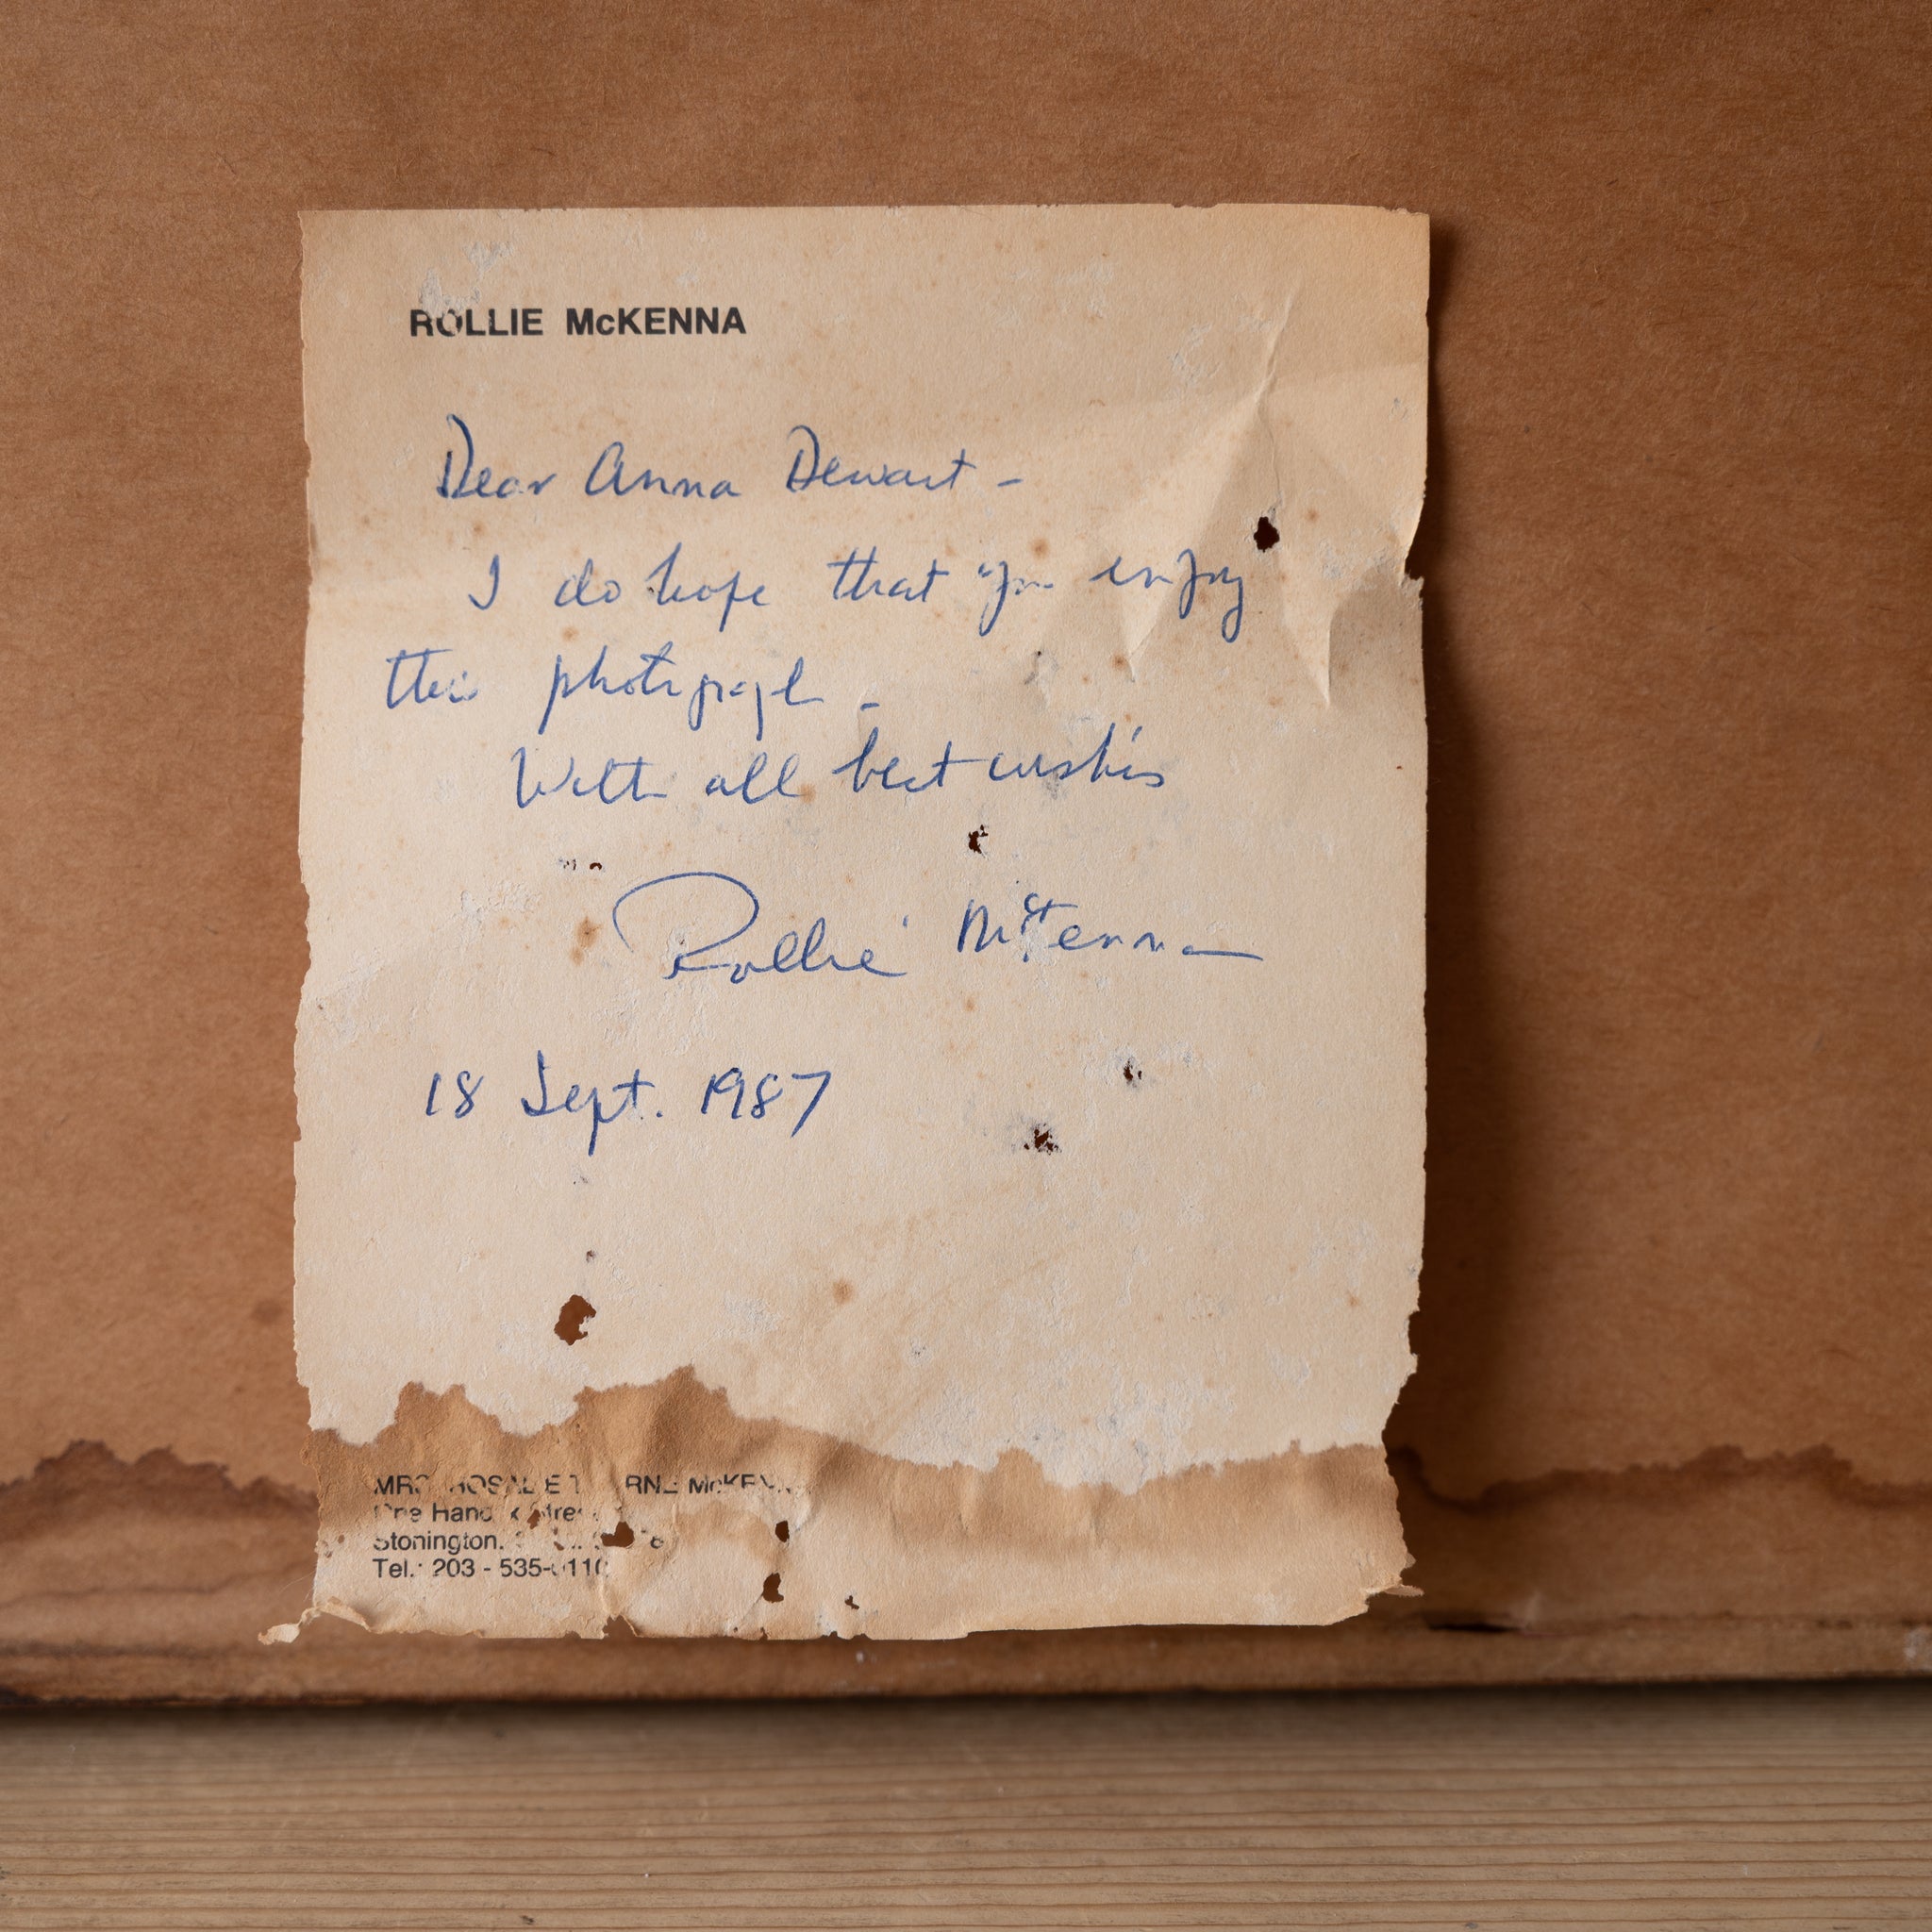 ROLLIE McKENNA
Dear Anna Dewart -
I do hope that you enjoy
this photograph -
With all best wishes
Rollie McKenna
18 Sept. 1987
MRS ROSALIE THORNE McKENNA
One Street
Stonington,
Tel.: 203 - 535-